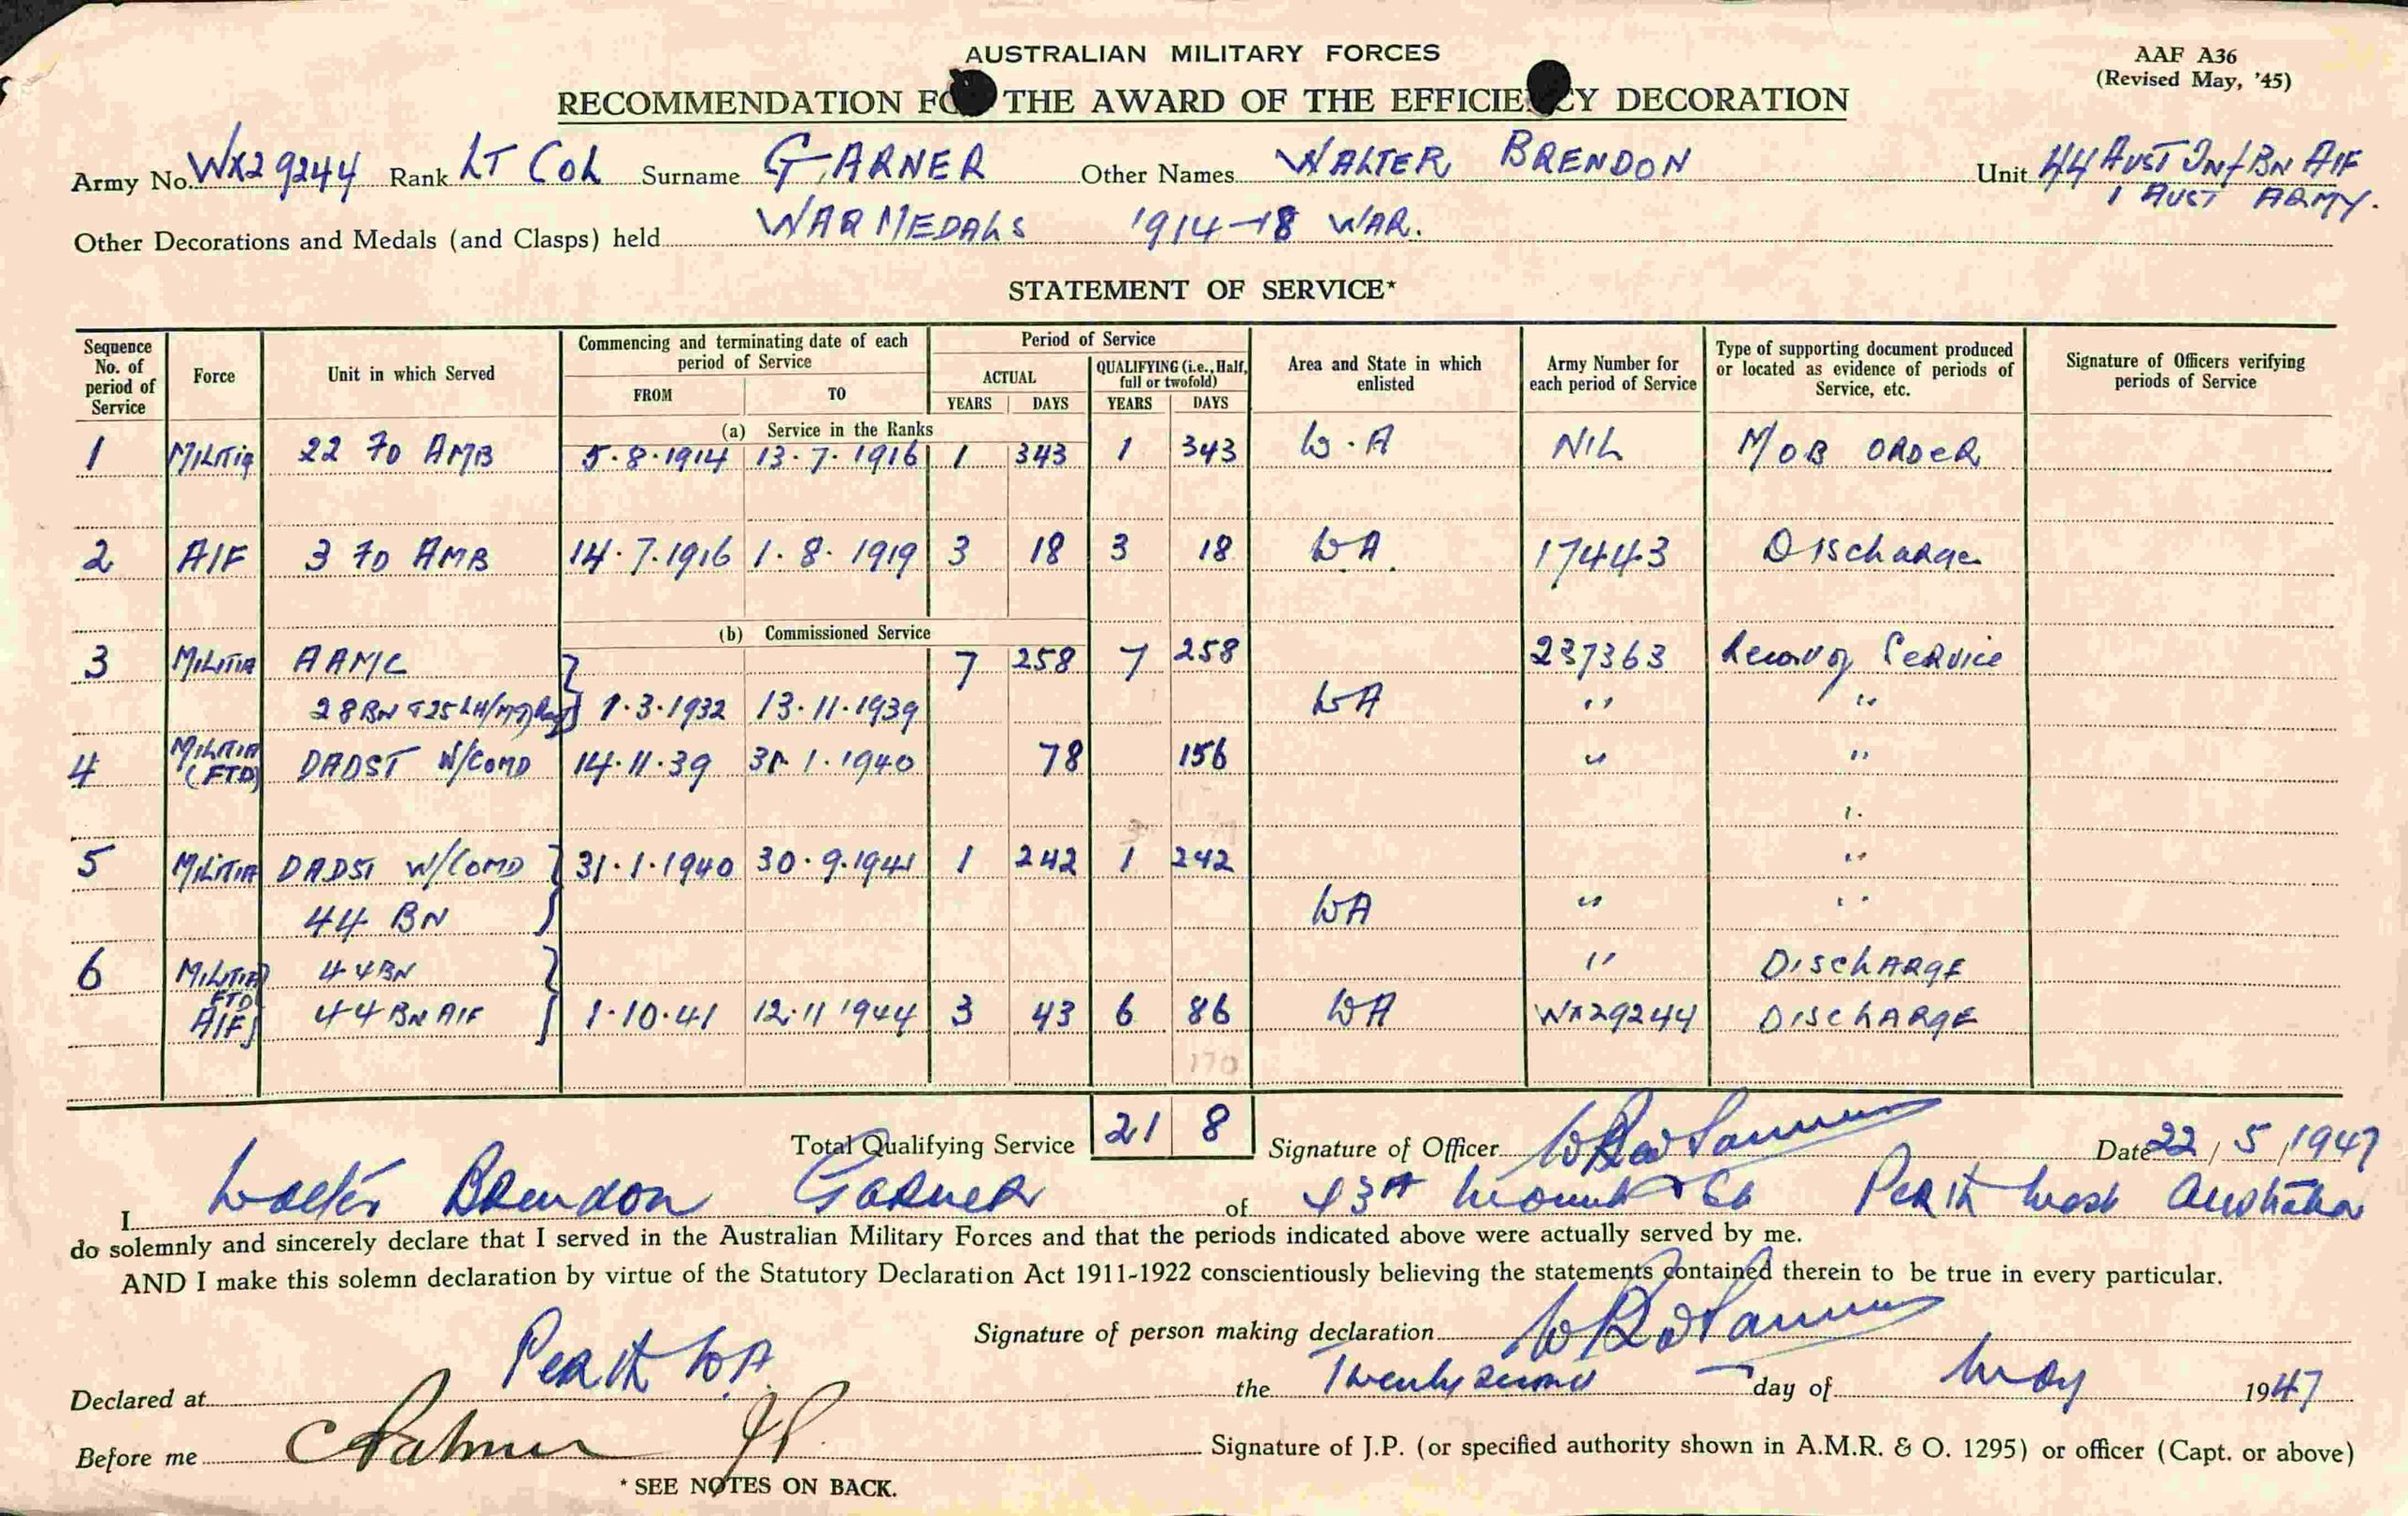 AUSTRALIAN MILITARY FORCES
AAF A36
(Revised May, '45)
RECOMMENDATION FO THE AWARD OF THE EFFICIE CY DECORATION
Army No. WX29244 Rank LT COL Surname GARNER Other Names WALTER BRENDON Unit 44 AUST Inf BN AIF
1 AUST ARMY.
Other Decorations and Medals (and Clasps) held WAR MEDALS 1914-18 WAR.
STATEMENT OF SERVICE*
Sequence No. of period of Service
Force
Unit in which Served
Commencing and terminating date of each period of Service
FROM TO
Period of Service
ACTUAL
YEARS DAYS
QUALIFYING (i.e., Half, full or twofold)
YEARS DAYS
Area and State in which enlisted
Army Number for each period of Service
Type of supporting document produced or located as evidence of periods of Service, etc.
Signature of Officers verifying periods of Service
(a) Service in the Ranks
1 MILITIA 22 FD AMB 5.8.1914 13.7.1916 1 343 1 343 W.A NIL MOB ORDER
2 AIF 3 FD AMB 14.7.1916 1.8.1919 3 18 3 18 WA. 17443 Discharge
(b) Commissioned Service
3 MILITIA AAMC 7 258 7 258 237363 Record of Service
28 BN & 25 LH/MG Regt 1.3.1932 13.11.1939 WA " "
4 MILITIA (FTD) DADST W/COMD 14.11.39 31.1.1940 78 156 " "
"
5 MILITIA DADST W/COMD 31.1.1940 30.9.1941 1 242 1 242 "
44 BN WA " "
6 MILITIA FTD 44 BN " DISCHARGE
AIF 44 BN AIF 1.10.41 12.11 1944 3 43 6 86 WA WX29244 DISCHARGE
170
Total Qualifying Service 21 8 Signature of Officer Date 22/5/1947
I Walter Brendon Garner of 43A Mount St Perth West Australia
do solemnly and sincerely declare that I served in the Australian Military Forces and that the periods indicated above were actually served by me.
AND I make this solemn declaration by virtue of the Statutory Declaration Act 1911-1922 conscientiously believing the statements contained therein to be true in every particular.
Signature of person making declaration
Declared at Perth W.A. the Twenty second day of May 1947
Before me JP Signature of J.P. (or specified authority shown in A.M.R. & O. 1295) or officer (Capt. or above)
* SEE NOTES ON BACK.